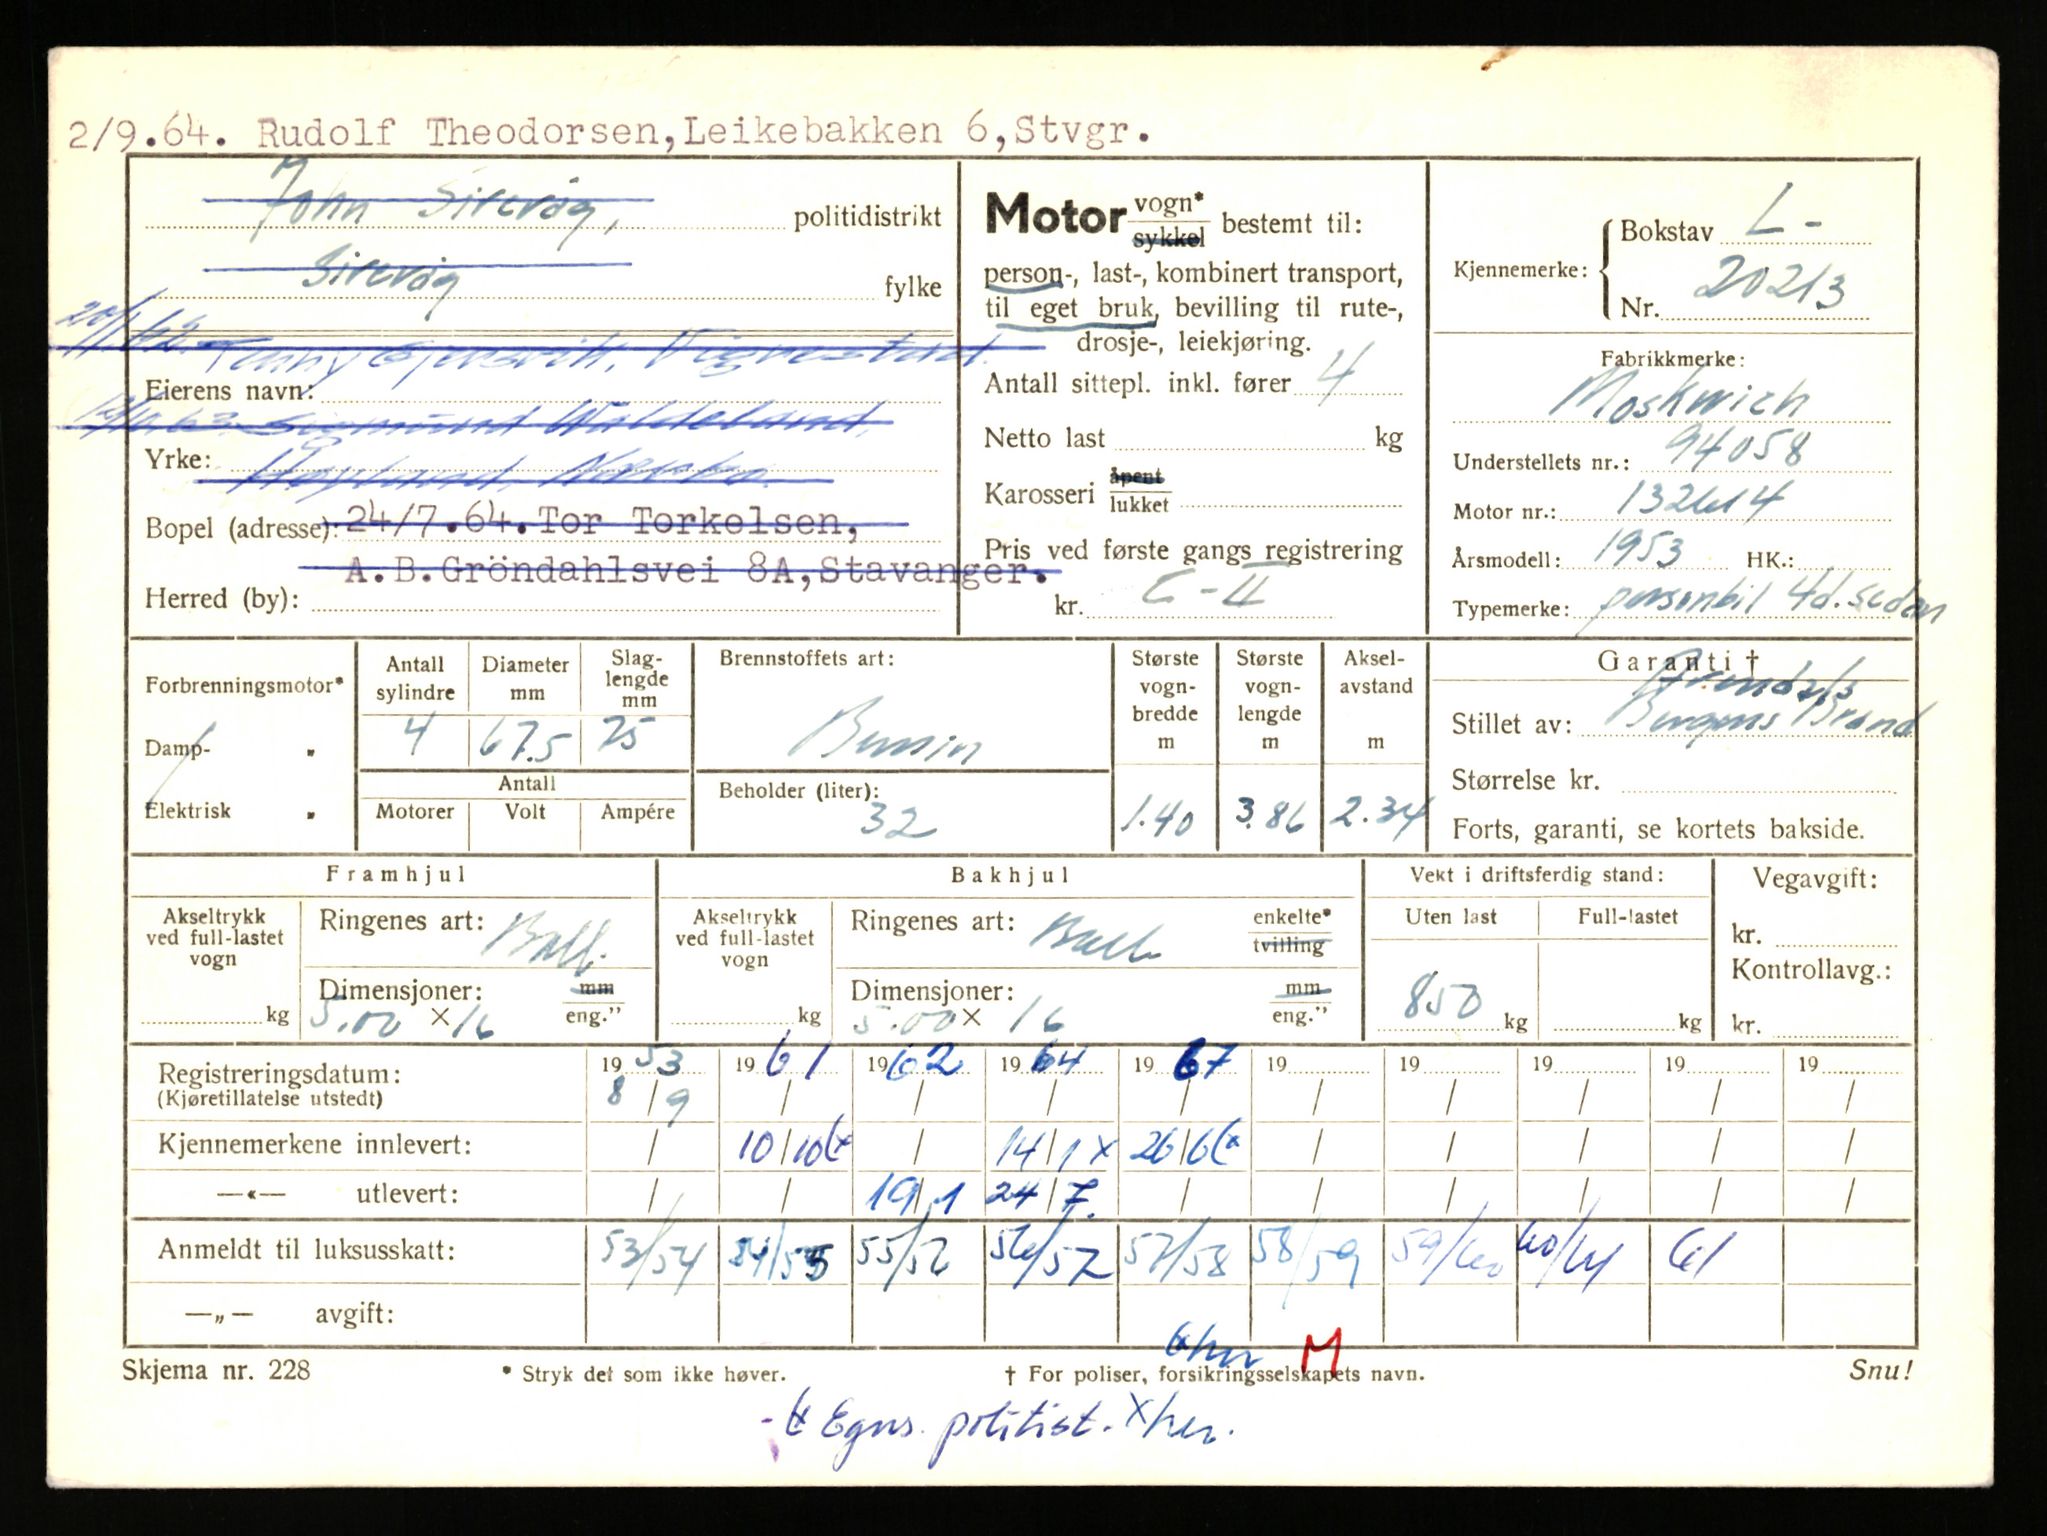 2/9.64. Rudolf Theodorsen, Leikebakken 6, Stvgr.
John Sirevåg, politidistrikt
Sirevåg fylke
20/1.62. Tonny Gjersvik, Vigrestad.
Eierens navn:
Sigmund Waldeland,
Yrke: Høyland, Nærbø.
Bopel (adresse): 24/7.64. Tor Torkelsen,
A.B.Gröndahlsvei 8A, Stavanger.
Herred (by):
Motor vogn* sykkel bestemt til:
person-, last-, kombinert transport,
til eget bruk, bevilling til rute-,
drosje-, leiekjøring.
Antall sittepl. inkl. fører 4
Netto last kg
Karosseri åpent lukket
Pris ved første gangs registrering
kr. C-II
Kjennemerke: Bokstav L-
Nr. 20213
Fabrikkmerke:
Moskwich
Understellets nr.: 94058
Motor nr.: 132614
Årsmodell: 1953 HK.:
Typemerke: personbil 4d. sedan
Forbrenningsmotor*
Damp- "
Elektrisk "
Antall sylindre 4
Diameter mm 67.5
Slag-lengde mm 75
Antall
Motorer Volt Ampére
Brennstoffets art:
Bensin
Beholder (liter):
32
Største vogn-bredde m 1.40
Største vogn-lengde m 3.86
Aksel-avstand m 2.34
Garanti †
Arendals
Stillet av: Bergens Brand
Størrelse kr.
Forts, garanti, se kortets bakside.
Framhjul
Akseltrykk ved full-lastet vogn kg
Ringenes art: Ball.
Dimensjoner: mm
5.00 × 16 eng."
Bakhjul
Akseltrykk ved full-lastet vogn kg
Ringenes art: Ball. enkelte* tvilling
Dimensjoner: mm
5.00 × 16 eng."
Vekt i driftsferdig stand:
Uten last Full-lastet
850 kg kg
Vegavgift:
kr.
Kontrollavg.:
kr.
Registreringsdatum: 1953 1961 1962 1964 1967 19 19 19 19 19
(Kjøretillatelse utstedt) 8/9 / / / / / / / / /
Kjennemerkene innlevert: / 10/10 (x / 14/1 x 26/6 (x / / / / /
—«— utlevert: / / 19/1 24/7. / / / / / /
Anmeldt til luksusskatt: 53/54 54/55 55/56 56/57 57/58 58/59 59/60 60/61 61
—„— avgift:
(x her M
Skjema nr. 228 * Stryk det som ikke høver. † For poliser, forsikringsselskapets navn. Snu!
- (x Egns. politist. x her.